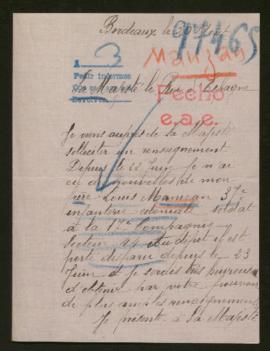 Bordeaux le 30
97465
A 3
Manseau
Pedir informes
Devolver
A Sa Majesté le Roi d'Espagne
Fecho
e.a.e.
Je viens auprès de Sa Majesté
solliciter un renseignement
Depuis le 22 Juin je n'ai
eu de nouvelles de mon
Louis Manseau 37
infanterie coloniale soldat
à la 17 Compagnie
Secteur il est
porté disparu depuis le 23
Juin et je serais très heureux
d'obtenir par votre
de plus amples renseignements
Je présente à Sa Majesté